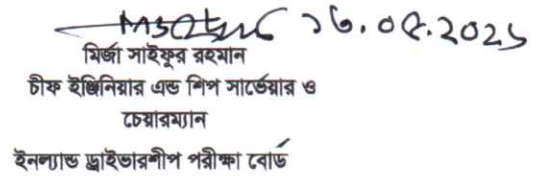 ১৬.০৫.২০২১
মির্জা সাইফুর রহমান
চীফ ইঞ্জিনিয়ার এন্ড শিপ সার্ভেয়ার ও
চেয়ারম্যান
ইনল্যান্ড ড্রাইভারশীপ পরীক্ষা বোর্ড